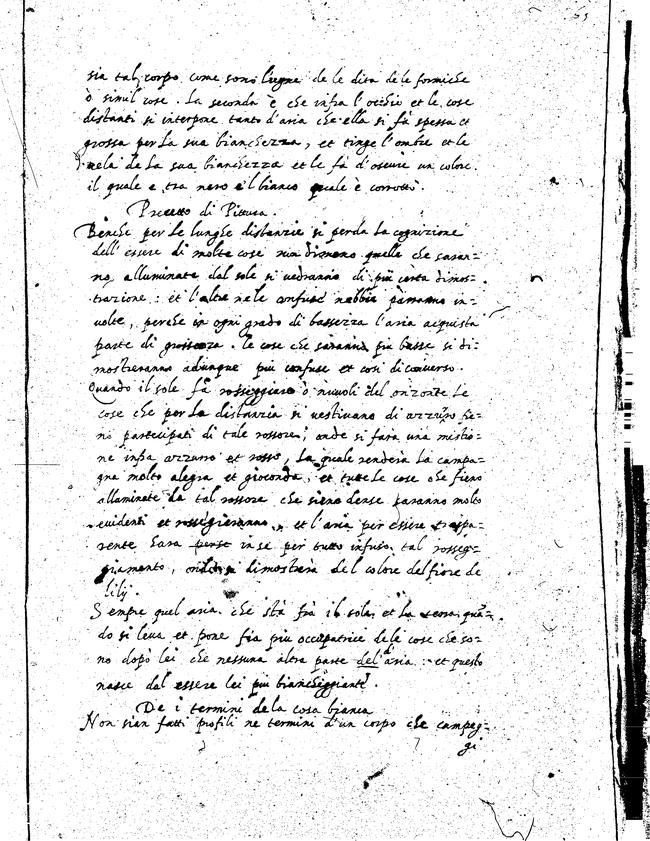 sia tal corpo come sono legne de le dita de le formiche
ò simil cose. La seconda è che infra l'occhio et le cose
distanti si interpone tanto d'aria che ella si fà spessa et
grossa per la sua bianchezza, et tinge l'ombre et le
vela de la sua bianchezza et le fà d'oscure un colore
il quale e tra nero e'l bianco quale è corrotto.
Precetto di Pittura.
Benche per le lunghe distanzie si perda la cognizione
dell'essere di molte cose non dimeno quelle che saran=
no alluminate dal sole si uedranno di più certa dimos=
trazione: et l'altre ne le confuse nebbie parranno in=
volte, perche in ogni grado di bassezza l'aria acquista
parte di grossezza. le cose che saranno più basse si di=
mostreranno adunque più confuse et cosi di converso.
Quando il sole fà rosseggiare ò nuvoli del orizonte le
cose che per la distanzia si uestivano di azzurro fie=
no partecipati di tale rossore; onde si fara una mistio=
ne infra azzurro et rosso, la quale renderà la campa=
gna molto alegra et gioconda, et tutte le cose che fieno
alluminate da tal rossore che sieno dense saranno molto
euidenti et rossegieranno, et l'aria per essere traspa=
rente hara perse in se per tutto infuso tal rosseg=
giamento, onde si dimostrerà del colore del fiore de
lilij.
Sempre quel aria che stà frà il sole et la terra quā=
do si leua et pone fia più occupatrice dele cose che so=
no dopò lei che nessuna altra parte del'aria: et questo
nasce dal essere lei più biancheggiante.
De i termini de la cosa bianca
Non sian fatti profili ne termini d'un corpo che campeg=
gi